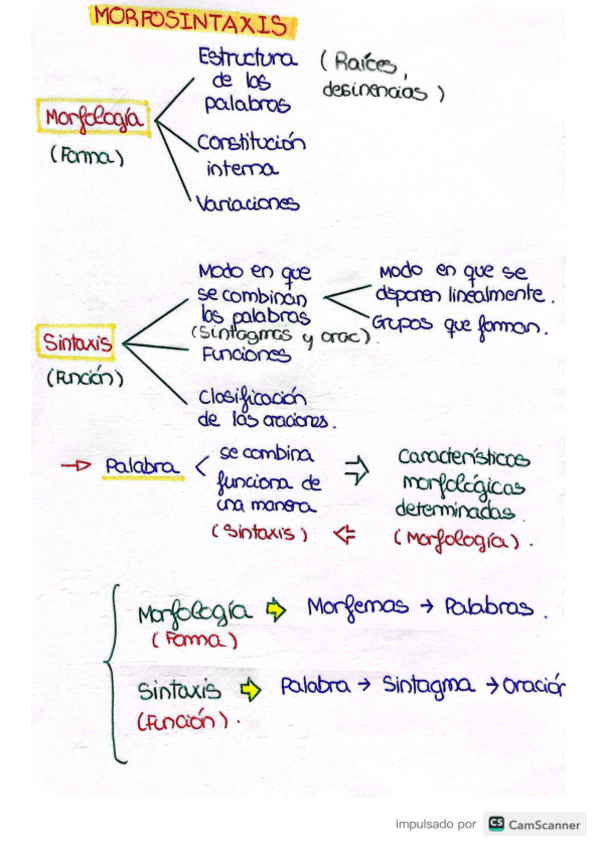 MORFOSINTAXIS
Estructura (Raíces,
de las desinencias)
palabras
Morfología
(Forma)
Constitución
interna
Variaciones
Modo en que
se combinan
las palabras
(Sintagmas y orac).
Modo en que se
disponen linealmente.
Grupos que forman.
Sintaxis
(Función)
Funciones
Clasificación
de las oraciones.
→ Palabra < se combina
funciona de
una manera
(Sintaxis)
⇒ Características
morfológicas
determinadas.
⇐ (Morfología).
Morfología ⇒ Morfemas → Palabras.
(Forma)
Sintaxis ⇒ Palabra → Sintagma → Oración
(Función).
impulsado por CS CamScanner